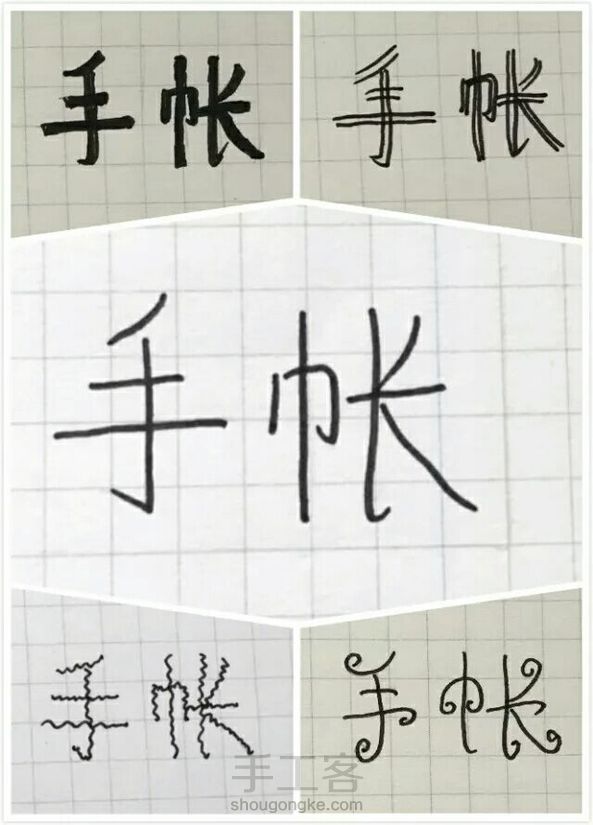 手帐
手帐
手帐
手帐
手帐
手工客
shougongke.com